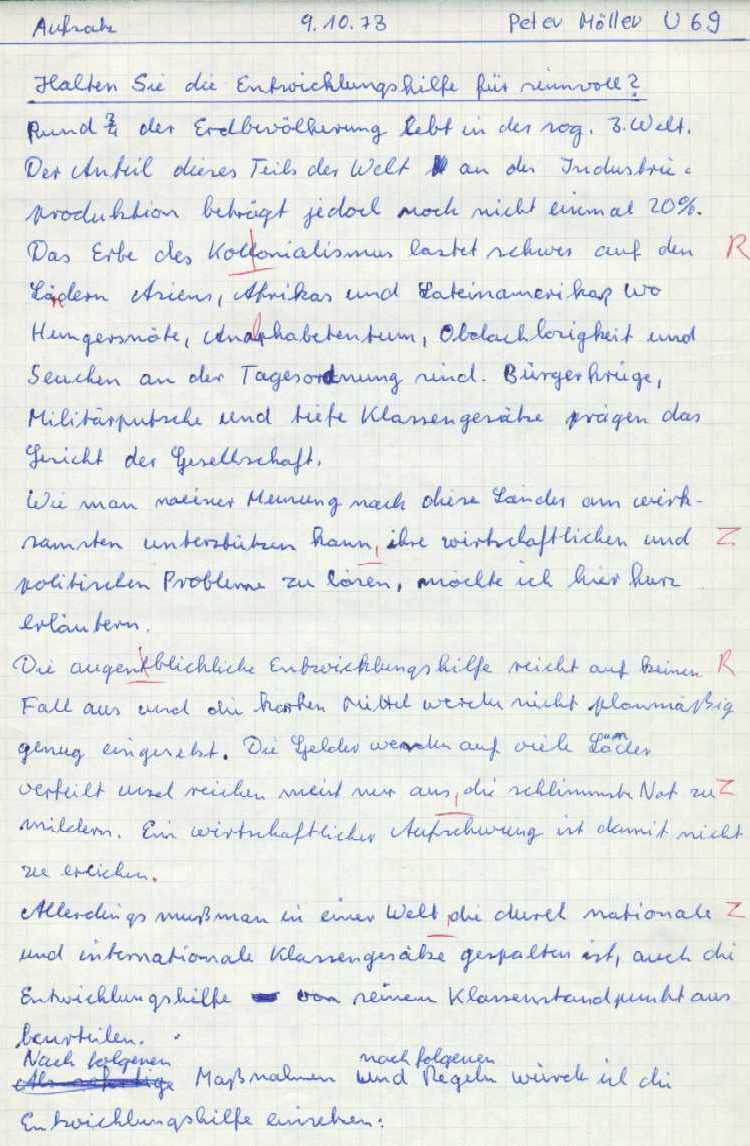 Aufsatz 9.10.73 Peter Möller U 69
Halten Sie die Entwicklungshilfe für sinnvoll?
Rund ¾ der Erdbevölkerung lebt in der sog. 3. Welt.
Der Anteil dieses Teils der Welt an der Industrie-
produktion beträgt jedoch noch nicht einmal 20%.
Das Erbe des Kollonialismus lastet schwer auf den R
Lädern Asiens, Afrikas und Lateinamerikas, wo
Hungersnöte, Analphabetentum, Obdachlosigkeit und
Seuchen an der Tagesordnung sind. Bürgerkriege,
Militärputsche und tiefe Klassengesätze prägen das
Gesicht der Gesellschaft.
Wie man meiner Meinung nach diese Länder am wirk-
samsten unterstützen kann, ihre wirtschaftlichen und Z
politischen Probleme zu lösen, möchte ich hier kurz
erläutern.
Die augenblichliche Entwicklungshilfe reicht auf keinen R
Fall aus und die harten Mittel werden nicht planmäßig
genug eingesetzt. Die Gelder werden auf viele Länder
verteilt und reichen meist nur aus, die schlimmste Not zu Z
mildern. Ein wirtschaftlicher Aufschwung ist damit nicht
zu erreichen.
Allerdings muß man in einer Welt, die durch nationale Z
und internationale Klassengesätze gespalten ist, auch die
Entwicklungshilfe von seinem Klassenstandpunkt aus
beurteilen.
Nach folgenen Maßnahmen und nach folgenen Regeln würde ich die
Entwicklungshilfe einsetzen: